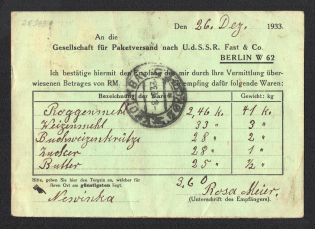 Den 26. Dez. 1933.
An die
Gesellschaft für Paketversand nach U.d.S.S.R. Fast & Co.
BERLIN W 62
Ich bestätige hiermit den Empfang des mir durch Ihre Vermittlung über-
wiesenen Betrages von RM. empfing dafür folgende Waren:
Bezeichnung der Waren Gewicht: kg
Roggenmehl 2,46 k. 41 k.
Weizenmehl 33 " 3 "
Buchweizengrütze 28 " 2 "
Zucker 28 " 1 "
Butter 25 " ½ "
Bitte, geben Sie hier den Torgsin an, welcher für
Ihren Ort am günstigsten liegt.
3,60
Rosa Meier.
(Unterschrift des Empfängers).